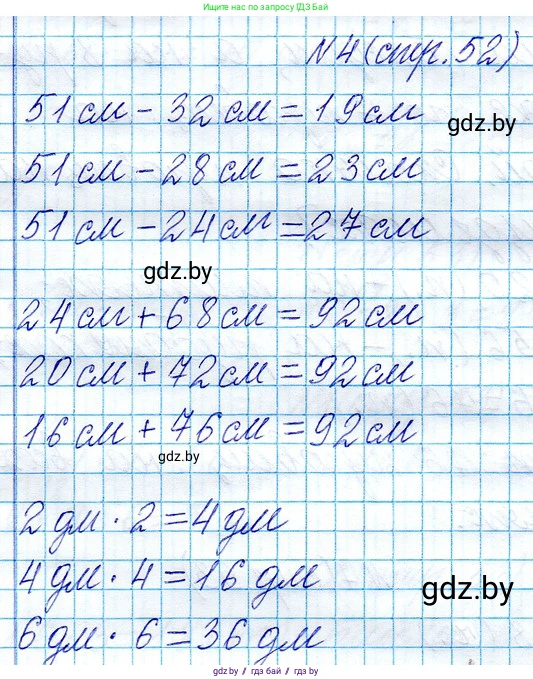 Ищите нас по запросу
ГДЗ Бай
N 4 (стр. 52)
51 см - 32 см = 19 см
gdz.by
51 см - 28 см = 23 см
51 см - 24 см = 27 см
gdz.by
24 см + 68 см = 92 см
20 см + 72 см = 92 см
16 см + 76 см = 92 см
gdz.by
2 дм · 2 = 4 дм
4 дм · 4 = 16 дм
gdz.by
6 дм · 6 = 36 дм
gdz.by / гдз бай / gdz.by